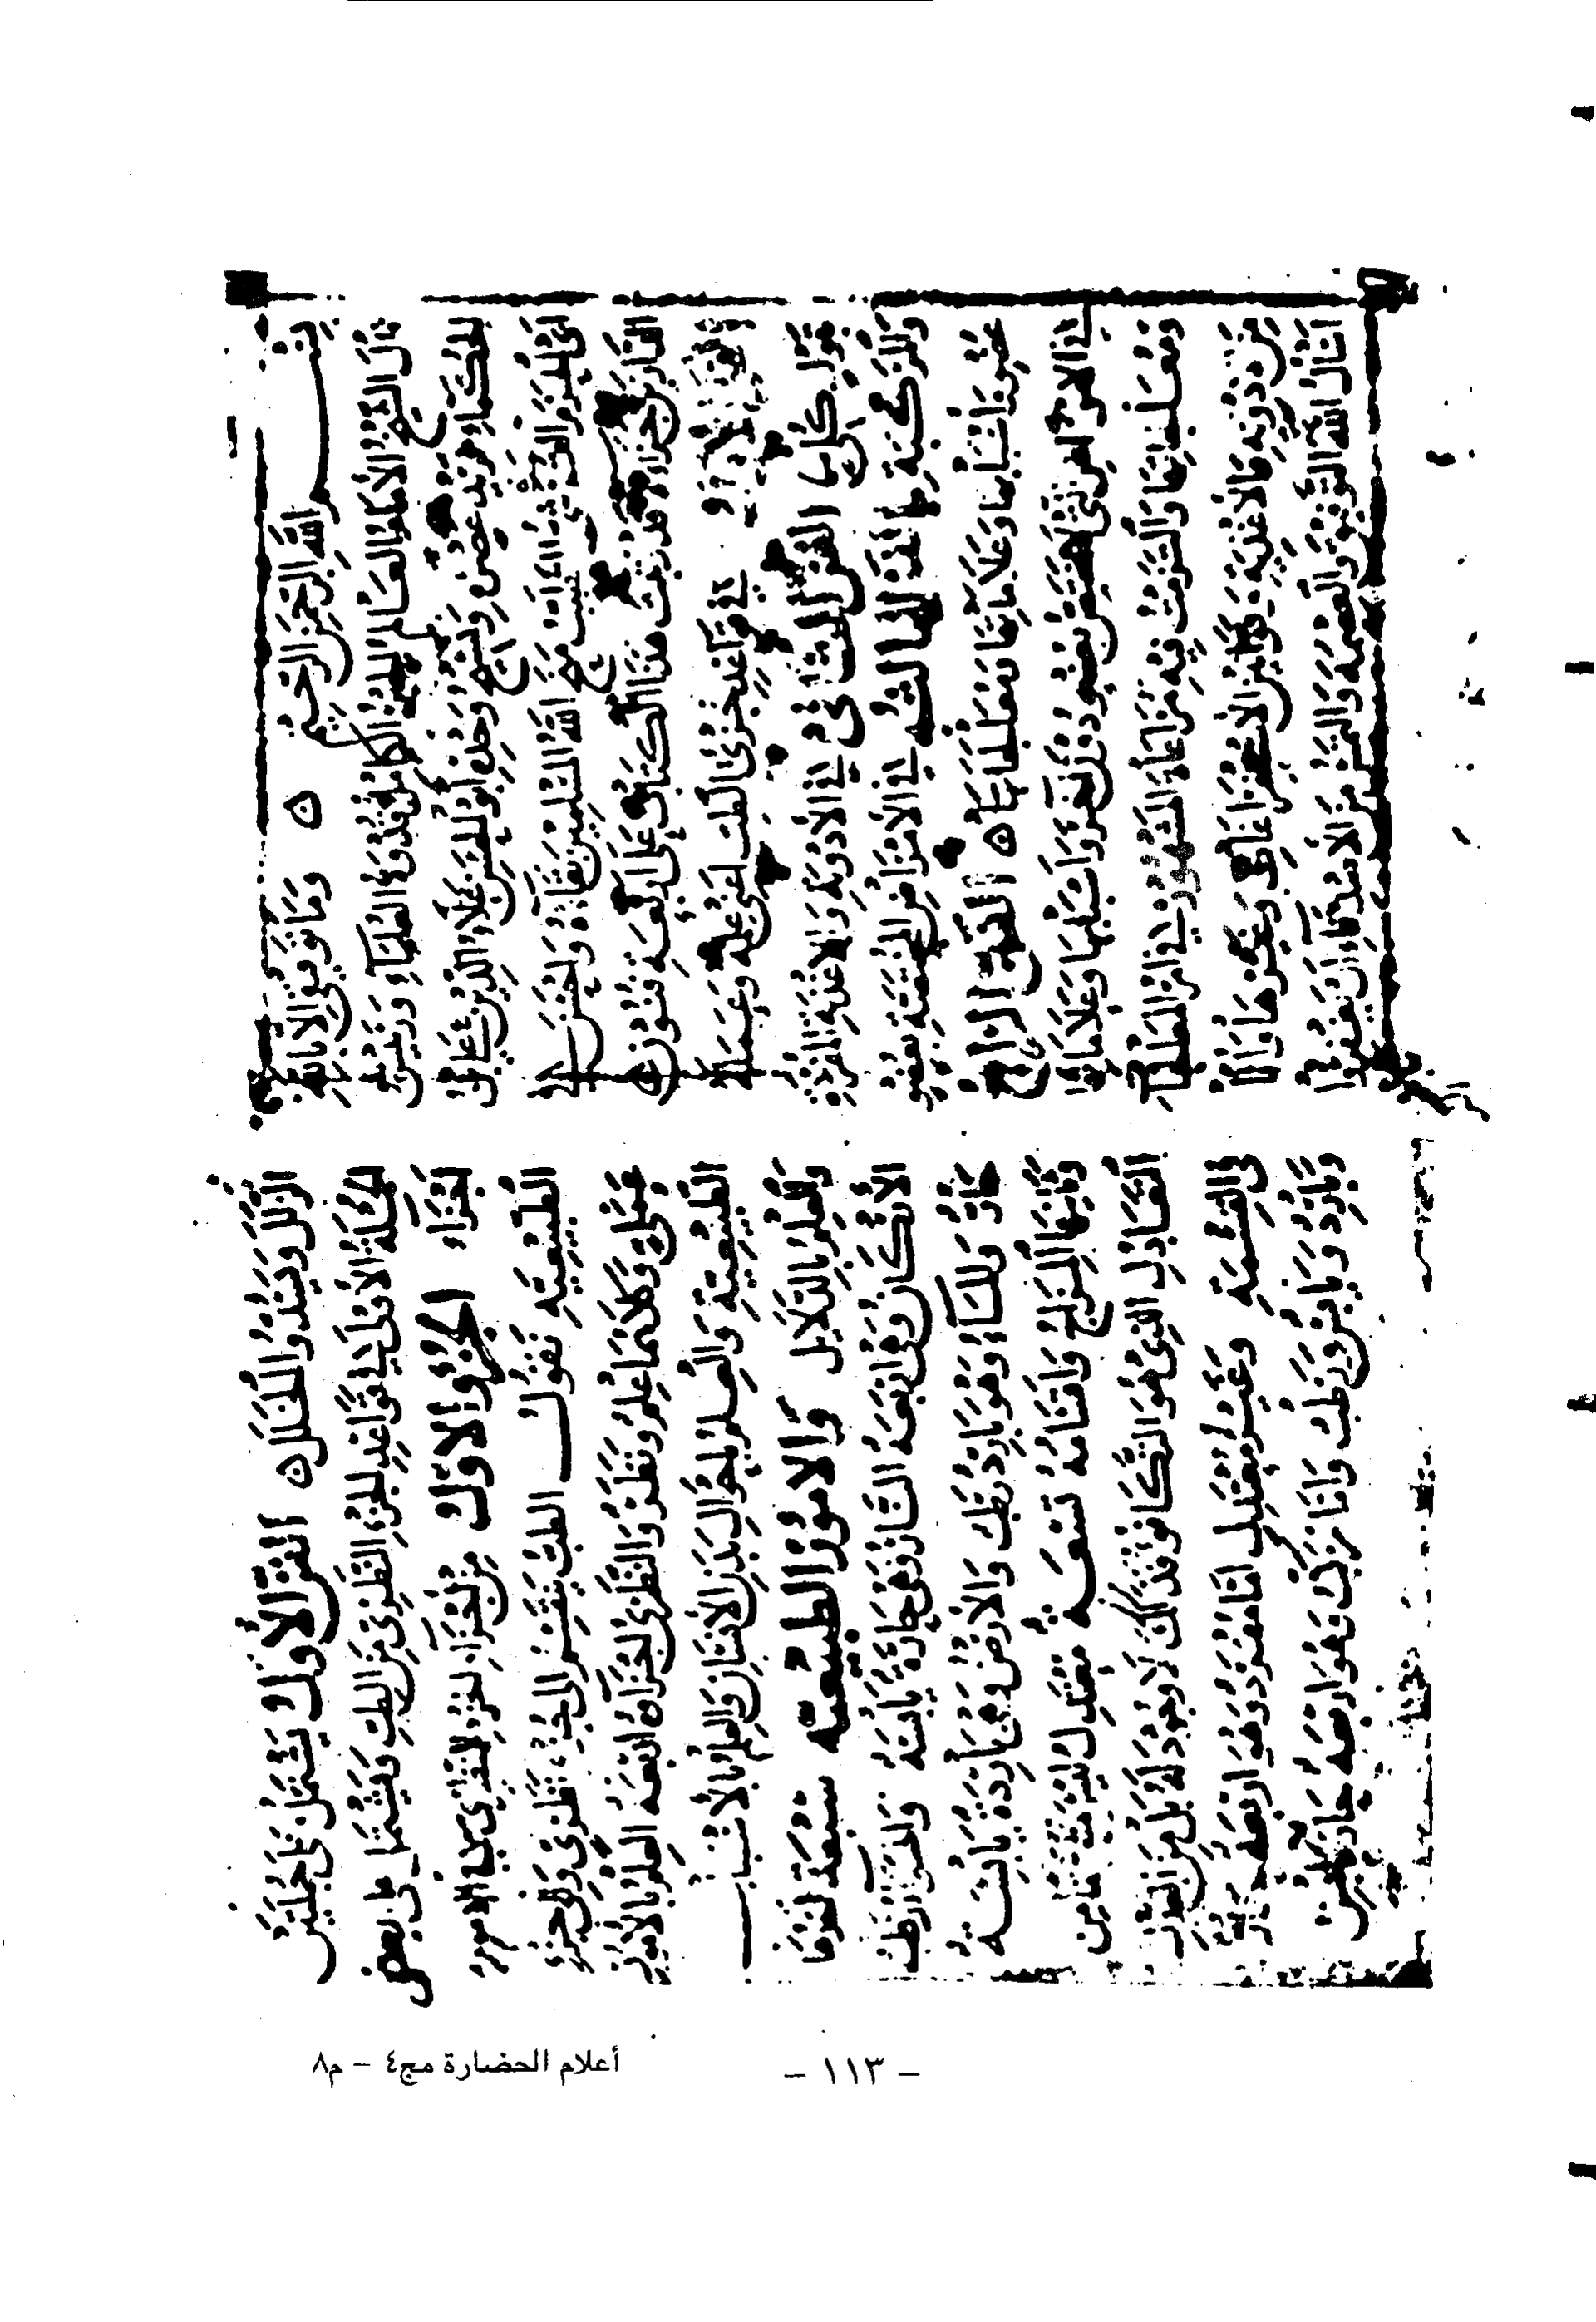 بسم الله الرحمن الرحيم ه وما توفيقي الا بالله
قال الشيخ الامام العالم الكامل قدوة العلماء ورئيس
الحكماء فريد عصره ونسيج وحده ابو الحسن علاء الدين علي بن
ابي الحزم القرشي متع الله المسلمين ببقائه واحسن
جزاءه قد رتبت هذا الكتاب على اربعة فنون
في قواعد جزئي الطب اعني علمه وعمله
بقول كلي الفن الثاني في الادوية والاغذية المفردة
والمركبة الفن الثالث في الامراض المختصة بعضو
عضو واسبابها وعلاماتها ومعالجاتها ه الفن الرابع
في الامراض التي لا تختص بعضو دون آخر واسبابها وعلاماتها
ومعالجاتها والتزمت فيه مراعاة المشهور في امر المعالجات
من الادوية والاغذية وقوانين الاستفراغات وغيرها وانا
اسأل الله التوفيق والعصمة والتمس من الاصدقاء ان يغفروا
الزلل ويسدوا الخلل ه الفن الأول يشتمل على جملتين
الجملة الأولى في قواعد الجزء النظري من الطب
اجزاء الجزء الاول من اجزاء الجزء النظري في الامور
الطبيعية نقول الطب ينقسم الى جزء نظري والى جزء
عملي وكلاهما علم ونظر والنظري اجزاؤه اربعة العلم بالامور
الطبيعية والعلم باحوال بدن الانسان والعلم بالاسباب
والعلم بالدلايل والامور الطبيعيه سبعة احدها
الأركان وهي اربعة النار وهي حارة يابسة والهواء رطب
حار والماء وهو بارد رطب والارض وهي باردة يابسة
وثانيها المزاج واقسامه تسعة معتدل ليس مشتقا من
التعادل الذي هو التكافؤ فذاك لا وجود له بل من العدل
في القسمة وغير معتدل اما مفرد وهو اربعة حار
وبارد ويابس ورطب واما مركب وهو اربعة حار يابس
- ١١٣ -
أعلام الحضارة مج٤ - م٨